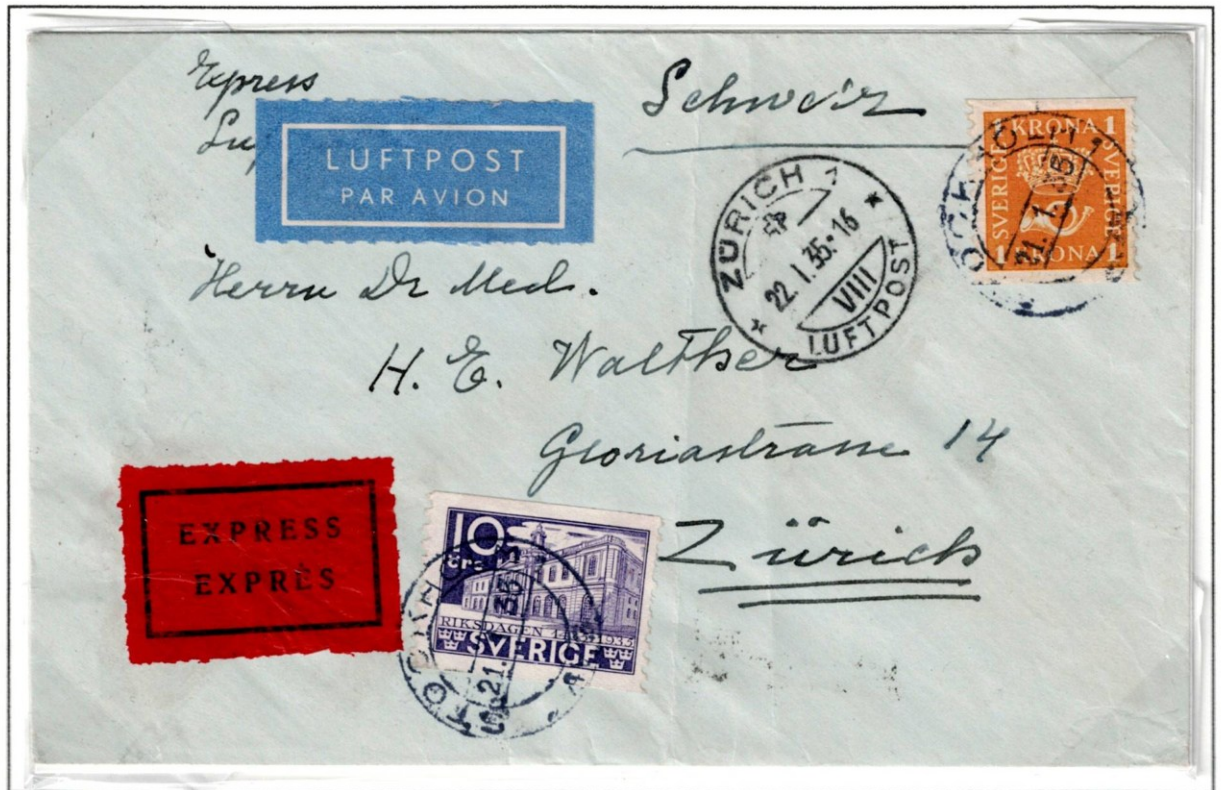 Express
Lu
LUFTPOST
PAR AVION
Schweiz
1 KRONA 1
SVERIGE SVERIGE
1 KRONA 1
STOCKHOLM
21. 1. 35
ZÜRICH 1
22. I. 35. 16
VIII
LUFTPOST
Herrn Dr Med.
H. E. Walther
Gloriastrasse 14
Zürich
EXPRESS
EXPRÈS
10
ÖRE
RIKSDAGEN 1435 1935
SVERIGE
STOCKHOLM
21. 1. 35